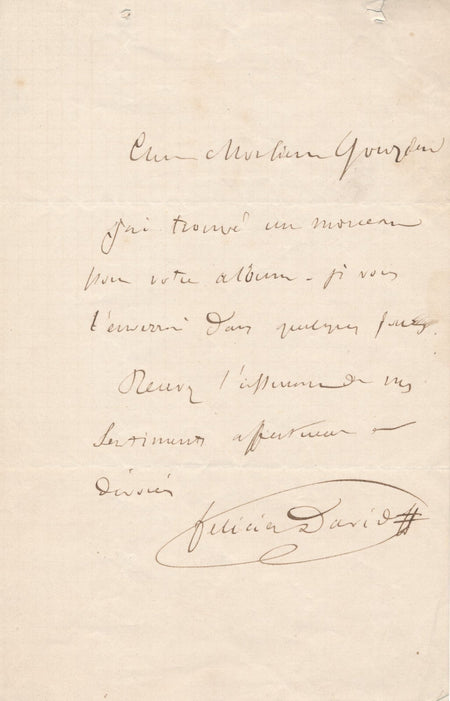 Cher Monsieur Gouzien
J'ai trouvé un morceau
pour votre album. je vous
l'enverrai dans quelques jours.
Recevez l'assurance de mes
Sentiments affectueux et
dévoués
Félicien David